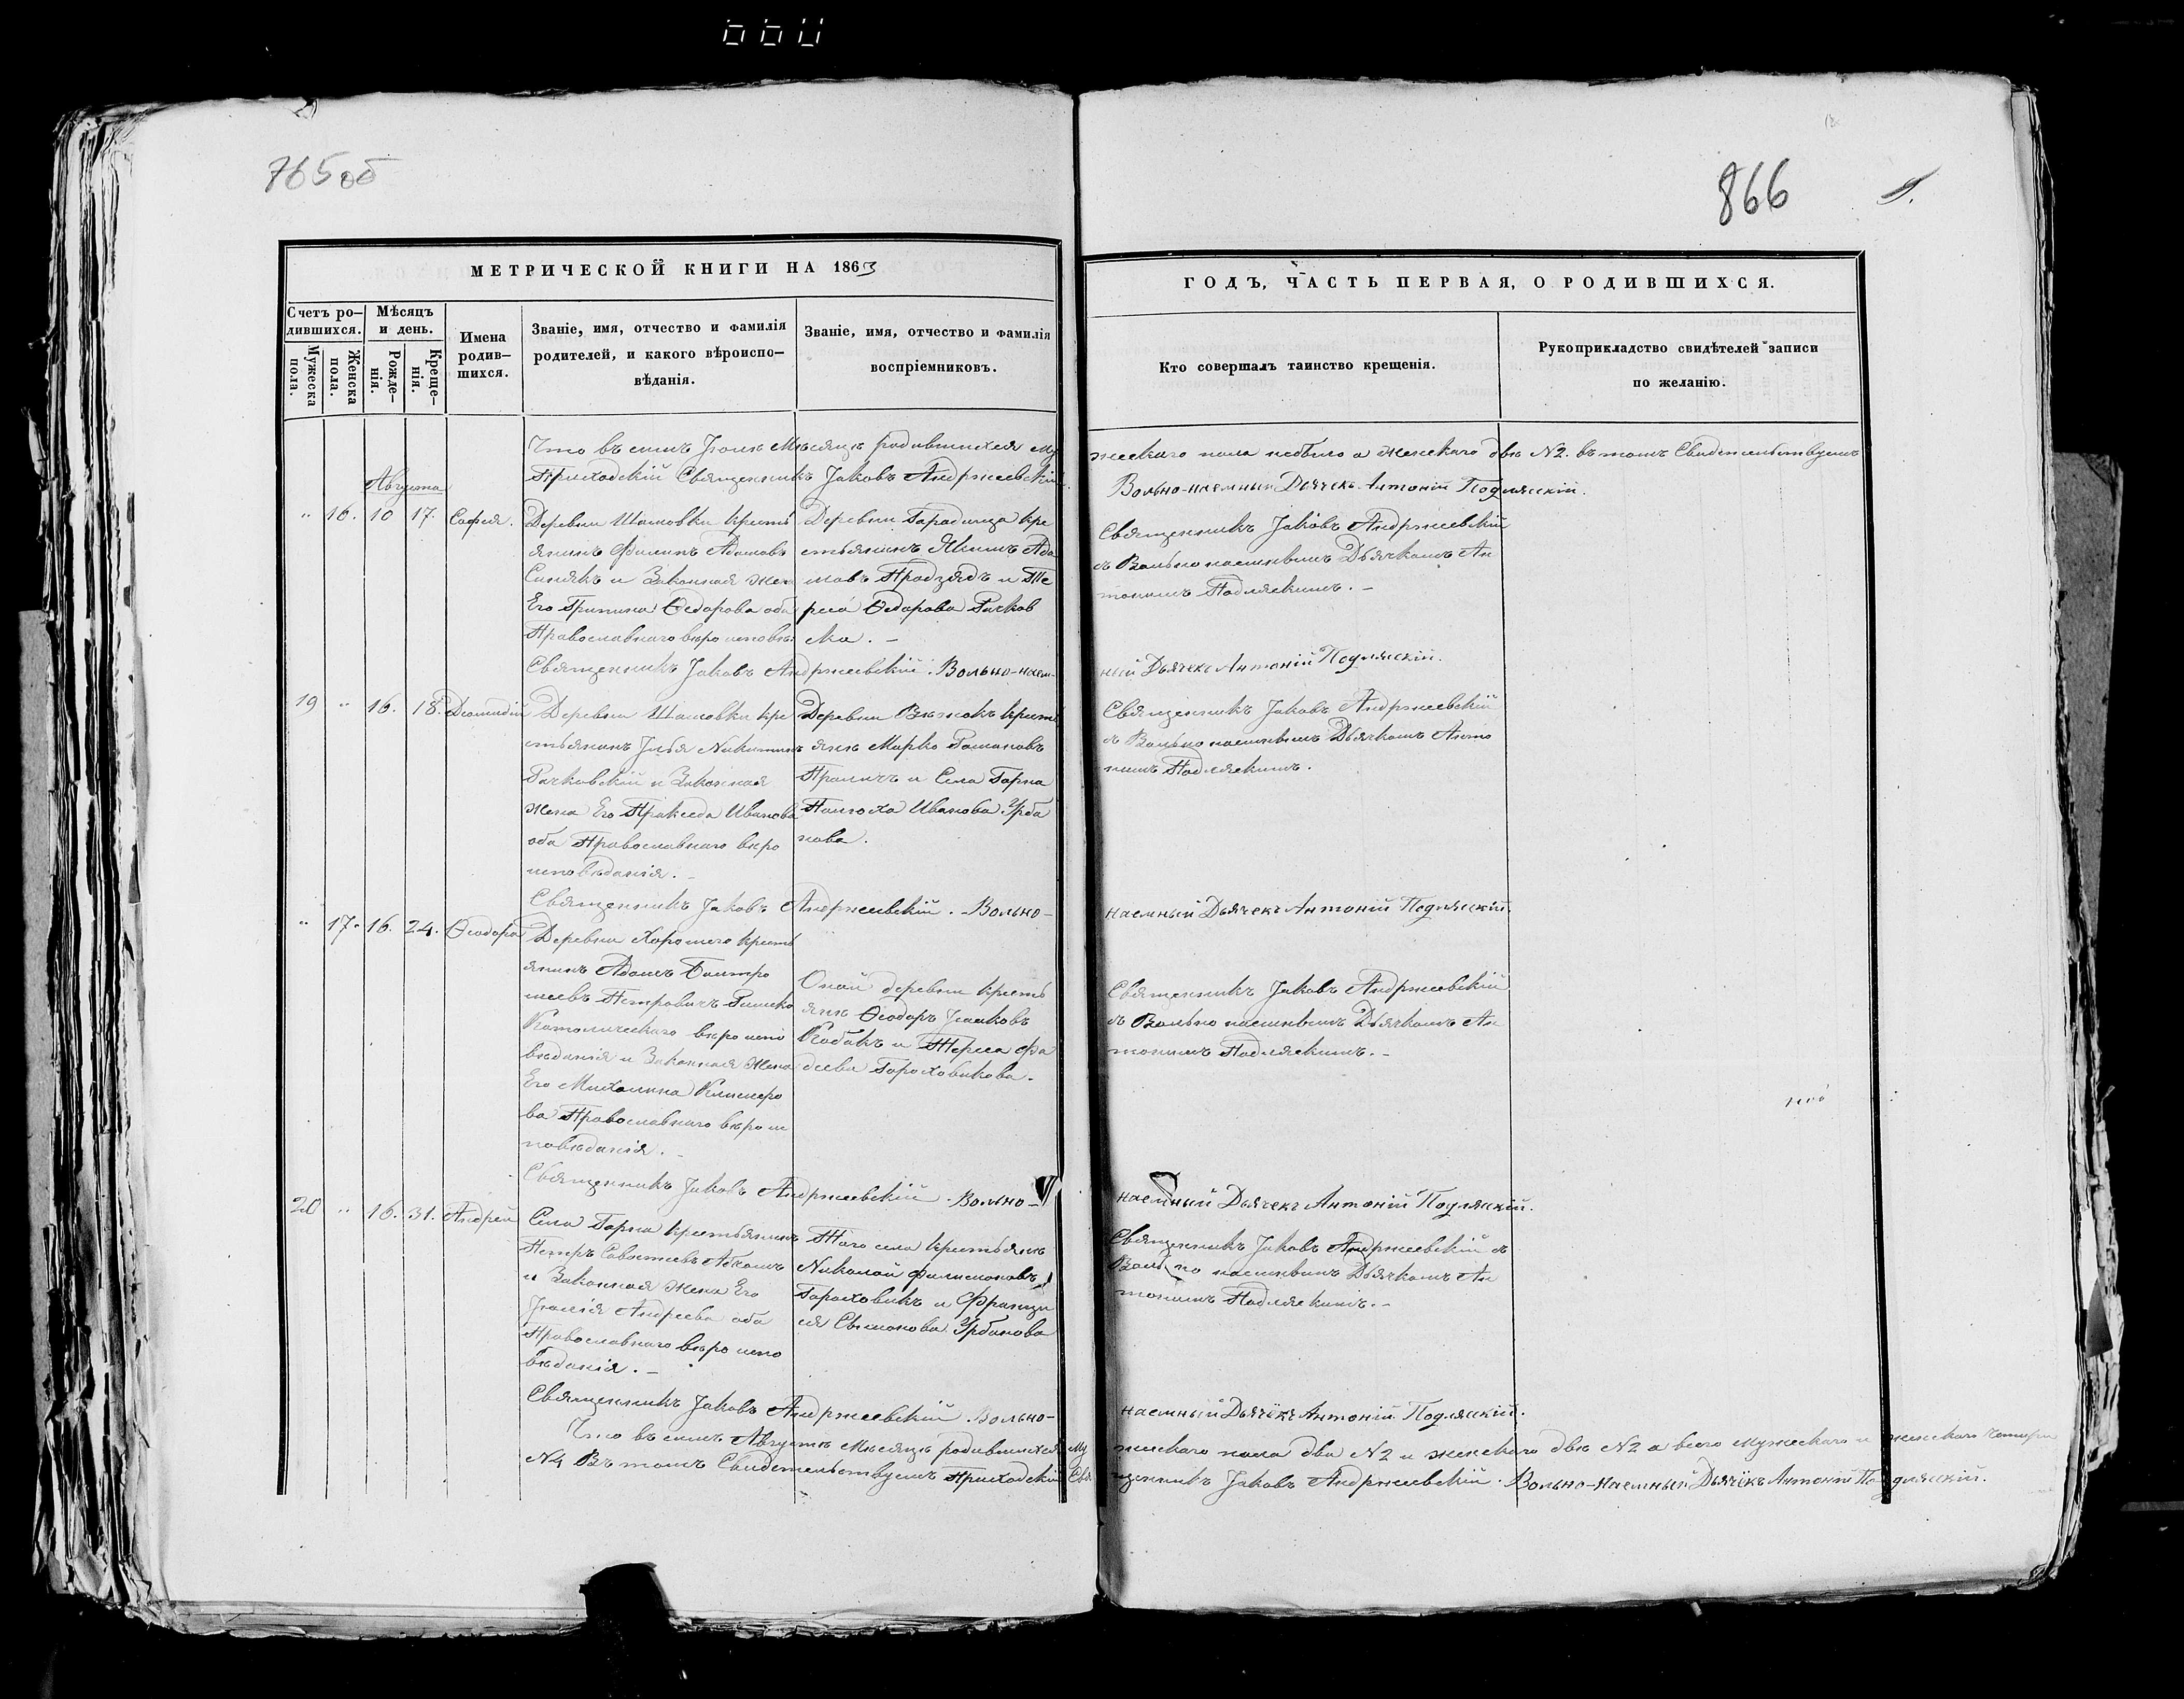 765 об
866
МЕТРИЧЕСКОЙ КНИГИ НА 1863
ГОДЪ, ЧАСТЬ ПЕРВАЯ, О РОДИВШИХСЯ.
Счетъ ро-
дившихся.
Мужеска
пола.
Женска
пола.
Мѣсяцъ
и день.
Рожде-
нія.
Креще-
нія.
Имена
родив-
шихся.
Званіе, имя, отчество и фамилія
родителей, и какого вѣроиспо-
вѣданія.
Званіе, имя, отчество и фамилія
воспріемниковъ.
Кто совершалъ таинство крещенія.
Рукоприкладство свидѣтелей записи
по желанію.
Что въ семъ Іюлѣ Мѣсяцѣ родившихся му
жескаго пола небыло а женскаго двѣ N2. въ томъ Свидетельствуемъ
Приходскій Священникъ Іаковъ Андржеевскій
Вольно-наемный Дьячекъ Антоній Подляскій.
Августа
" 16. 10 17. Софія.
Деревни Шашовки кресть
янинъ Филипъ Адамовъ
Синякъ и Законная жен
Его Грипина Ѳедорова оба
Православнаго вѣро исповѣ:
Деревни Городища кре
стьянинъ Якимъ Ада
мовъ Продзядъ и Те
реса Ѳедорова Рачков
ска. -
Священникъ Іаковъ Андржеевскій
съ Вольно наемнымъ Дьячкомъ Ан
тониемъ Подляскимъ. -
Священникъ Іаковъ Андржеевскій. Вольно-наем-
ный Дьячекъ Антоній Подляскій.
19 " 16. 18. Диомидій
Деревни Шашовки кре
стьянинъ Илья Никитинъ
Рачковскій и Законная
жена Его Пракседа Иванова
оба Православнаго вѣро
исповѣданія. -
Деревни Вѣжокъ кресть
янѣ Марко Романовъ
и Села Горна
Иванова Урба
нова.
Священникъ Іаковъ Андржеевскій
съ Вольно наемнымъ Дьячкомъ Анто
ниемъ Подляскимъ.
Священникъ Іаковъ Андржеевскій. Вольно-
наемный Дьячекъ Антоній Подляскій.
" 17. 16. 24. Ѳеодора
Деревни Хорошего кресть
янинъ Адамъ Балтро
меевъ Петровичъ Римско
Католическаго вѣро испо
вѣданія и Законная жена
Его Михалина
ва Православнаго вѣро ис
повѣданія. -
Оной деревни кресть
янѣ Ѳеодоръ Исаковъ
Кобакъ и Тереса Фа
деева Гороховикова.
Священникъ Іаковъ Андржеевскій
съ Вольно наемнымъ Дьячкомъ Ан
тониемъ Подляскимъ. -
Священникъ Іаковъ Андржеевскій. Вольно-
наемный Дьячекъ Антоній Подляскій.
20 " 16. 31. Андрей
Села Горна крестьянинъ
Петръ Савостеевъ
и Законная жена Его
Андреева оба
Православнаго вѣро испо
вѣданія. -
Того села крестьянѣ
Николай Филимоновъ
Гороховикъ и Францы
ся Сымонова Урбанова
Священникъ Іаковъ Андржеевскій съ
Вольно наемнымъ Дьячкомъ Ан
тониемъ Подляскимъ. -
Священникъ Іаковъ Андржеевскій. Вольно-
наемный Дьячёкъ Антоній Подляскій.
Что въ семъ Августѣ Мѣсяцѣ родившихся му
жескаго пола два N2 и женскаго двѣ N2 а всего мужескаго и женскаго четыри
N4 Въ томъ Свидетельствуемъ Приходскій Свя
щенникъ Іаковъ Андржеевскій. Вольно-наемный Дьячёкъ Антоній Подляскій.